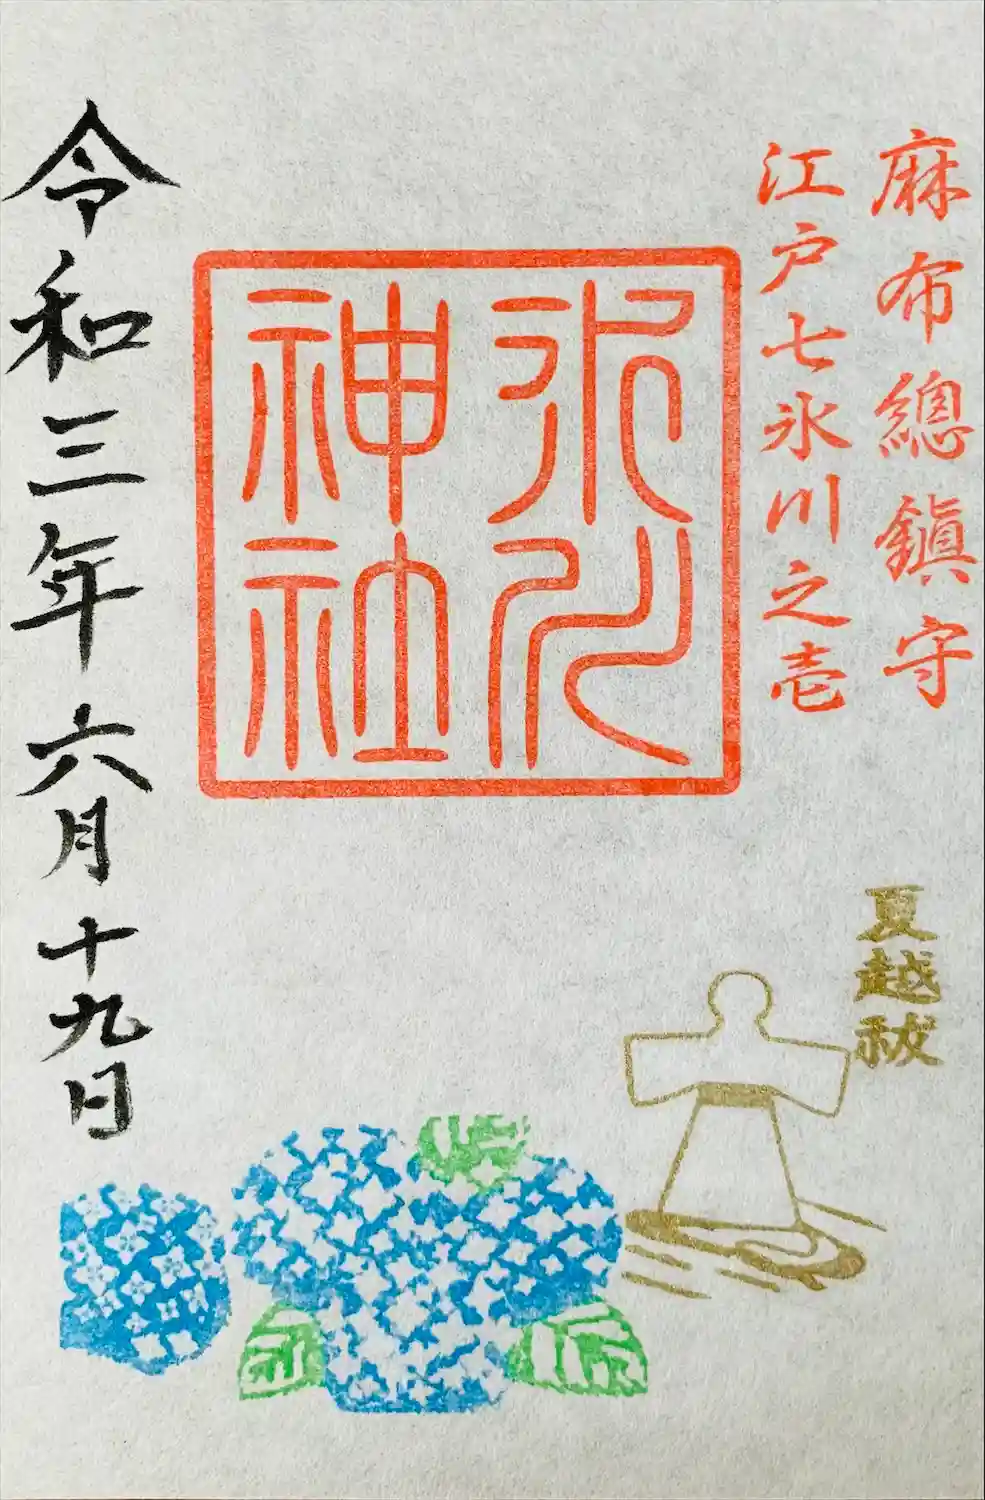 麻布總鎭守
江戸七氷川之壱
氷川
神社
夏越祓
令和三年六月十九日